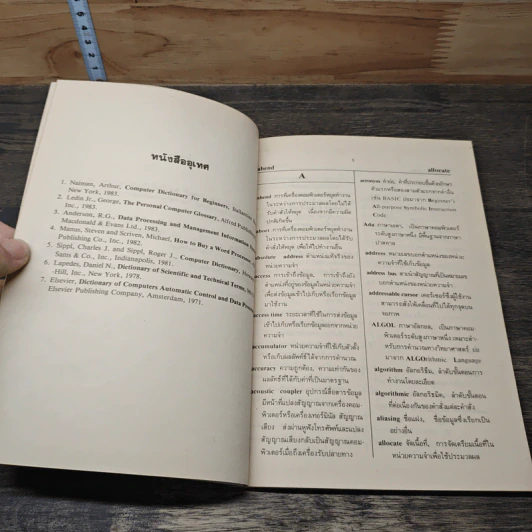 หนังสืออุเทศ
1. Naiman, Arthur, Computer Dictionary for Beginners,
New York, 1983.
2. Ledin Jr., George, The Personal Computer Glossary, Alfred
Inc., 1983.
3. Anderson, R.G., Data Processing and Management Information
Macdonald & Evans Ltd., 1983.
4. Manus, Steven and Scriven, Michael, How to Buy a Word Processor
Publishing Co., Inc., 1982.
5. Sippl, Charles J. and Sippl, Roger J., Computer Dictionary,
Sams & Co., Inc., Indianapolis, 1981.
6. Lapedes, Daniel N., Dictionary of Scientific and Technical Terms,
-Hill, Inc., New York, 1978.
7. Elsevier, Dictionary of Computers Automatic Control and Data
Elsevier Publishing Company, Amsterdam, 1971.
abend
allocate
A
abend การที่เครื่องคอมพิวเตอร์หยุดทำงาน
ในระหว่างการประมวลผลโดยไม่ได้
รับคำสั่งให้หยุด เนื่องจากมีความผิด
ปกติเกิดขึ้น
abort การที่เครื่องคอมพิวเตอร์หยุดทำงาน
ในระหว่างการประมวลผลโดยได้
รับคำสั่งให้หยุด เพื่อให้ไปทำงานอื่น
absolute address ตำแหน่งแท้จริงของ
หน่วยความจำ
access การเข้าถึงข้อมูล, การเข้าถึงยัง
ตำแหน่งที่อยู่ของข้อมูลในหน่วยความจำ
เพื่อส่งข้อมูลมาใช้ไปหรือเรียกข้อมูล
มาใช้
access time ระยะเวลาที่ใช้ในการส่งข้อมูล
เข้าไปหรือเรียกข้อมูลออกจากหน่วย
ความจำ
accumulator หน่วยความจำที่ใช้เก็บตัวตั้ง
หรือเก็บผลลัพธ์ที่ได้จากการคำนวณ
accuracy ความถูกต้อง, ความเท่ากันของ
ผลลัพธ์ที่ได้กับค่าที่เป็นมาตรฐาน
acoustic coupler อุปกรณ์สื่อสารข้อมูล
มีหน้าที่แปลงสัญญาณจากเครื่องคอม-
พิวเตอร์หรือเครื่องเทอร์มินัล สัญญาณ
เสียง ส่งผ่านหูฟังโทรศัพท์และแปลง
สัญญาณเสียงกลับเป็นสัญญาณคอม-
พิวเตอร์เมื่อถึงเครื่องรับปลายทาง
acronym คำย่อ, คำที่ประกอบขึ้นด้วยอักษร
ตัวแรกหรือสองสามตัวแรกจากคำอื่น
เช่น BASIC ย่อมาจาก Beginner's
All-purpose Symbolic Instruction
Code
Ada ภาษาเอดา, เป็นภาษาคอมพิวเตอร์
ระดับสูงภาษาหนึ่ง มีพื้นฐานจากภาษา-
ปาสคาล
address หมายเลขบอกตำแหน่งของหน่วย
ความจำที่ใช้เก็บข้อมูล
address bus สายนำสัญญาณที่เป็นหมายเลข
บอกตำแหน่งของหน่วยความจำ
addressable cursor เคอร์เซอร์ซึ่งผู้ใช้งาน
สามารถสั่งให้เคลื่อนที่ไปได้ทุกจุดบน
จอภาพ
ALGOL ภาษาอัลกอล, เป็นภาษาคอม-
พิวเตอร์ระดับสูงภาษาหนึ่ง เหมาะสำ-
หรับการคำนวณทางวิทยาศาสตร์ ย่อ
มาจาก ALGOrithmic Language
algorithm อัลกอริธึม, ลำดับขั้นตอนการ
ทำงานโดยละเอียด
algorithmic อัลกอริธมิค, ลำดับขั้นตอน
ที่ต่อเนื่องกันของคำสั่งแต่ละคำสั่ง
aliasing ชื่อแฝง, ชื่อข้อมูลซึ่งเรียกเป็น
อย่างอื่น
allocate จัดเนื้อที่, การจัดเตรียมเนื้อที่ใน
หน่วยความจำเพื่อใช้ประมวลผล